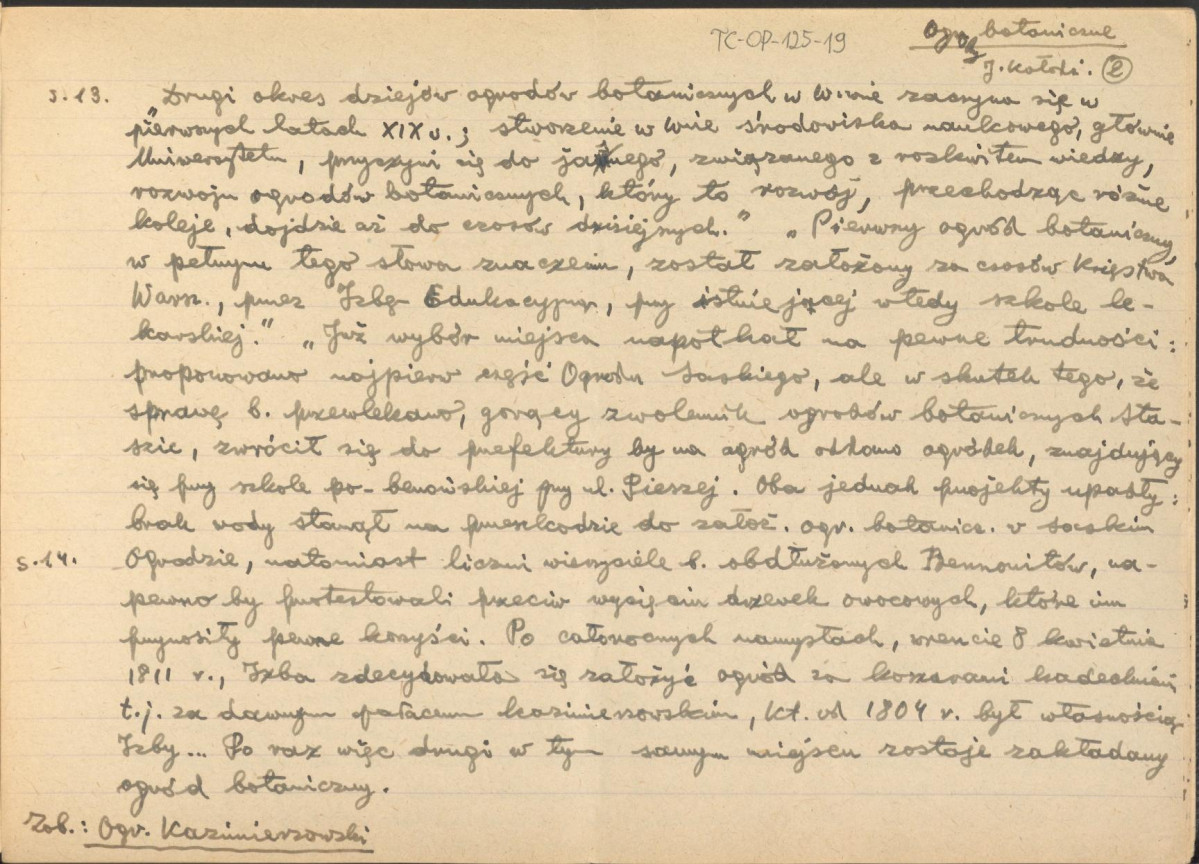 TC-OP-125-19
Ogrody botaniczne
J. Kołodz. (2)
s.13. „Drugi okres dziejów ogrodów botanicznych w W-wie zaczyna się w
pierwszych latach XIX w.; stworzenie w W-wie środowiska naukowego, głównie
Uniwersytetu, przyczyni się do jasnego, związanego z rozkwitem wiedzy,
rozwoju ogrodów botanicznych, który to rozwój, przechodząc różne
koleje, dojdzie aż do czasów dzisiejszych." „Pierwszy ogród botaniczny
w pełnym tego słowa znaczeniu, został założony za czasów Księstwa
Warsz., przez Izbę Edukacyjną, przy istniejącej wtedy szkole le-
karskiej." „Już wybór miejsca napotkał na pewne trudności:
proponowano najpierw część Ogrodu Saskiego, ale w skutek tego, że
sprawę b. przewlekano, gorący zwolennik ogrodów botanicznych Sta-
szic, zwrócił się do prefektury by na ogród oddano ogródek, znajdujący
się przy szkole po-benońskiej przy ul. Pieszej. Oba jednak projekty upadły:
brak wody stanął na przeszkodzie do założ. ogr. botanicz. w Saskim
s.14. Ogrodzie, natomiast liczni wierzyciele b. obdłużonych Bennonitów, na-
pewno by protestowali przeciw wycięciu drzewek owocowych, które im
przynosiły pewne korzyści. Po całorocznych namysłach, wreszcie 8 kwietnia
1811 r., Izba zdecydowała się założyć ogród za koszarami kadeckimi
t.j. za dawnym pałacem kazimierzowskim, kt. od 1804 r. był własnością
Izby... Po raz więc drugi w tym samym miejscu zostaje zakładany
ogród botaniczny.
Zob.: Ogr. Kazimierzowski